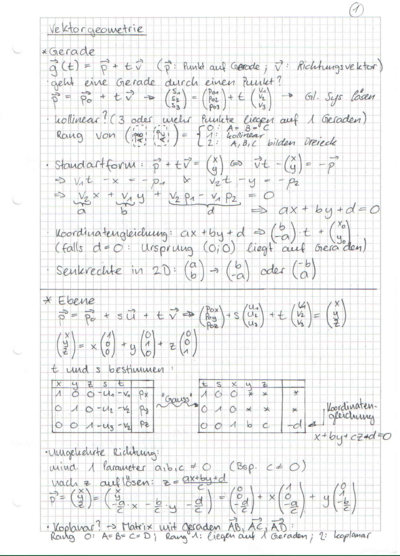 1
Vektorgeometrie
* Gerade
g⃗(t) = p⃗ + t v⃗ (p⃗: Punkt auf Gerade; v⃗: Richtungsvektor)
geht eine Gerade durch einen Punkt?
p⃗ = p⃗₀ + t v⃗ → = + t → Gl. Sys lösen
· kollinear? (3 oder mehr Punkte liegen auf 1 Geraden)
Rang von = { 0: A=B=C
1: kollinear
2: A,B,C bilden Dreieck
· Standartform: p⃗ + t v⃗ = (x y) ⇔ v⃗t − (x y) = −p⃗
⇒ v₁t − x = −p₁ & v₂t − y = −p₂
⇒ v₂x + v₁y + v₂p₁ − v₁p₂ = 0
a b d ⇒ ax + by + d = 0
· Koordinatengleichung: ax + by + d ⇒ (b −a) · t + (x₀ y₀)
(falls d=0: Ursprung (0;0) liegt auf Geraden)
· Senkrechte in 2D: (a b) → (b −a) oder (−b a)
* Ebene
p⃗ = p⃗₀ + s u⃗ + t v⃗ ⇒ (p₀x p₀y p₀z) + s (u₁ u₂ u₃) + t (v₁ v₂ v₃) = (x y z)
(x y z) = x (1 0 0) + y (0 1 0) + z (0 0 1)
t und s bestimmen:
x y z s t t s x y z
1 0 0 −u₁ −v₁ pₓ "Gauss" 1 0 0 * * *
0 1 0 −u₂ −v₂ p_y 0 1 0 * * *
0 0 1 −u₃ −v₃ p_z 0 0 1 b c −d
Koordinaten-
gleichung
x + by + cz + d = 0
· Umgekehrte Richtung:
mind. 1 Parameter a,b,c ≠ 0 (Bsp. c ≠ 0)
nach z auflösen: z = ax+by+d / c
p⃗ = (x y z) = (x y −a/c x − b/c y − d/c) = (0 0 −d/c) + x (1 0 −a/c) + y (0 1 −b/c)
· Koplanar? → Matrix mit Geraden AB, AC, AD
Rang 0: A=B=C=D; Rang 1: liegen auf 1 Geraden; 2: koplanar